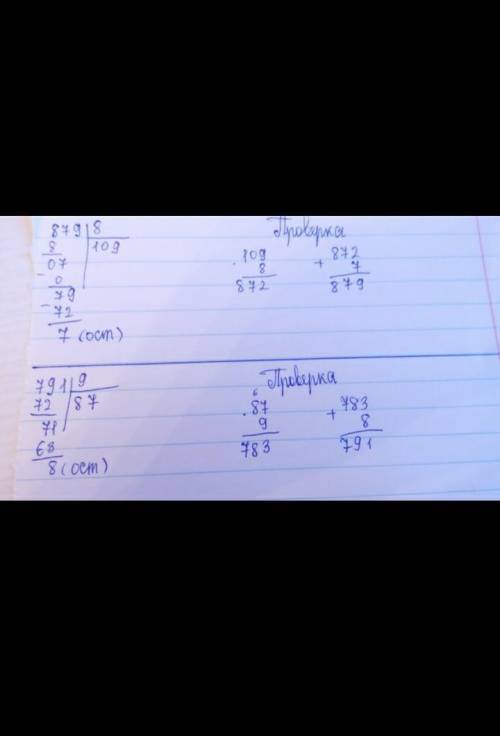 879 8
8 109
07
- 0
79
- 72
7 (ост)
Проверка
. 109
8
872
+ 872
7
879
791 9
72 87
71
63
8 (ост)
Проверка
6
. 87
9
783
+ 783
8
791